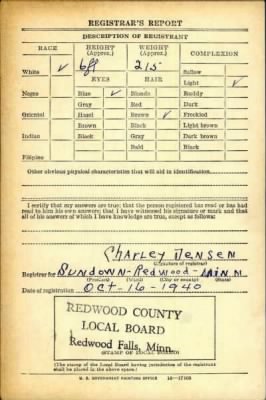 REGISTRAR'S REPORT
DESCRIPTION OF REGISTRANT
RACE HEIGHT (Approx.) WEIGHT (Approx.) COMPLEXION
White ✓ 6ft 215 Sallow
EYES HAIR Light ✓
Negro Blue ✓ Blonde Ruddy
Gray Red Dark
Oriental Hazel Brown ✓ Freckled
Brown Black Light brown
Indian Black Gray Dark brown
Bald Black
Filipino
Other obvious physical characteristics that will aid in identification
I certify that my answers are true; that the person registered has read or has
had read to him his own answers; that I have witnessed his signature or mark and that
all of his answers of which I have knowledge are true, except as follows:
Charley Jensen
(Signature of registrar)
Registrar for Sundown-Redwood-Minn.
(Precinct) (Ward) (City or county) (State)
Date of registration Oct-16-1940
REDWOOD COUNTY
LOCAL BOARD
Redwood Falls, Minn.
(STAMP OF LOCAL BOARD)
(The stamp of the Local Board having jurisdiction of the registrant
shall be placed in the above space.)
U. S. GOVERNMENT PRINTING OFFICE 16-17105